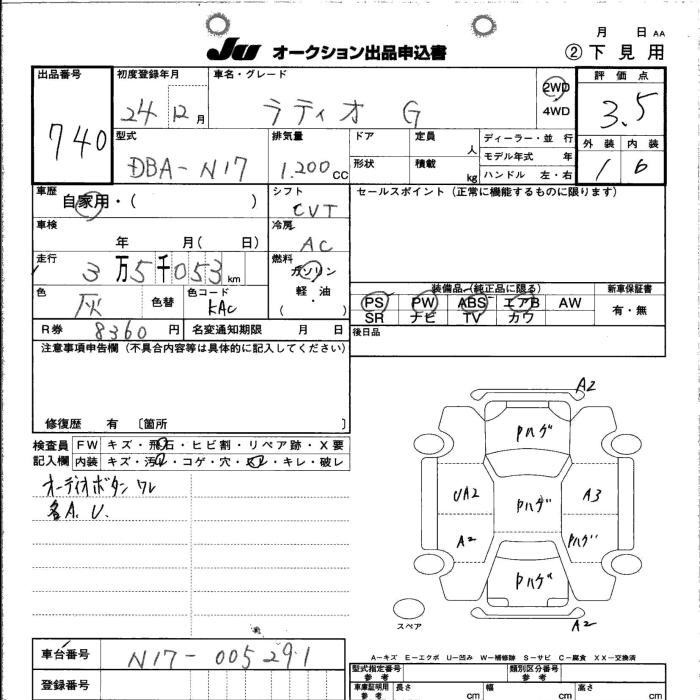 月 日 AA
JU オークション出品申込書 ② 下見用
出品番号 740
初度登録年月 24 12月
車名・グレード ラティオ G
2WD
4WD
評価点 3.5
外装 内装
1 6
型式 DBA-N17
排気量 1.200cc
ドア 定員 人
形状 積載 kg
ディーラー・並行
モデル年式 年
ハンドル 左・右
車歴 自家用・( )
シフト CVT
セールスポイント(正常に機能するものに限ります)
車検 年 月( 日)
冷房 AC
走行 3万5千053km
燃料 ガソリン
軽・油・
( )
色 灰 色替
色コード KAC
装備品(純正品に限る)
新車保証書
PS PW ABS エアB AW
SR ナビ TV カワ
有・無
R券 8360円 名変通知期限 月 日
後日品
注意事項申告欄(不具合内容等は具体的に記入してください)
修復歴 有 〔箇所 〕
検査員記入欄
FW キズ・飛石・ヒビ割・リペア跡・X要
内装 キズ・汚レ・コゲ・穴・スレ・キレ・破レ
オーディオボタン ワレ
各A.U.
A2
Pハゲ
UA2 Pハゲ A3
A2 Pハゲ
Pハゲ
A2
スペア
A-キズ E-エクボ U-凹み W-補修跡 S-サビ C-腐食 XX-交換済
車台番号 N17-005291
登録番号
型式指定番号 参考
類別区分番号 参考
車庫証明用 参考
長さ cm
幅 cm
高さ cm